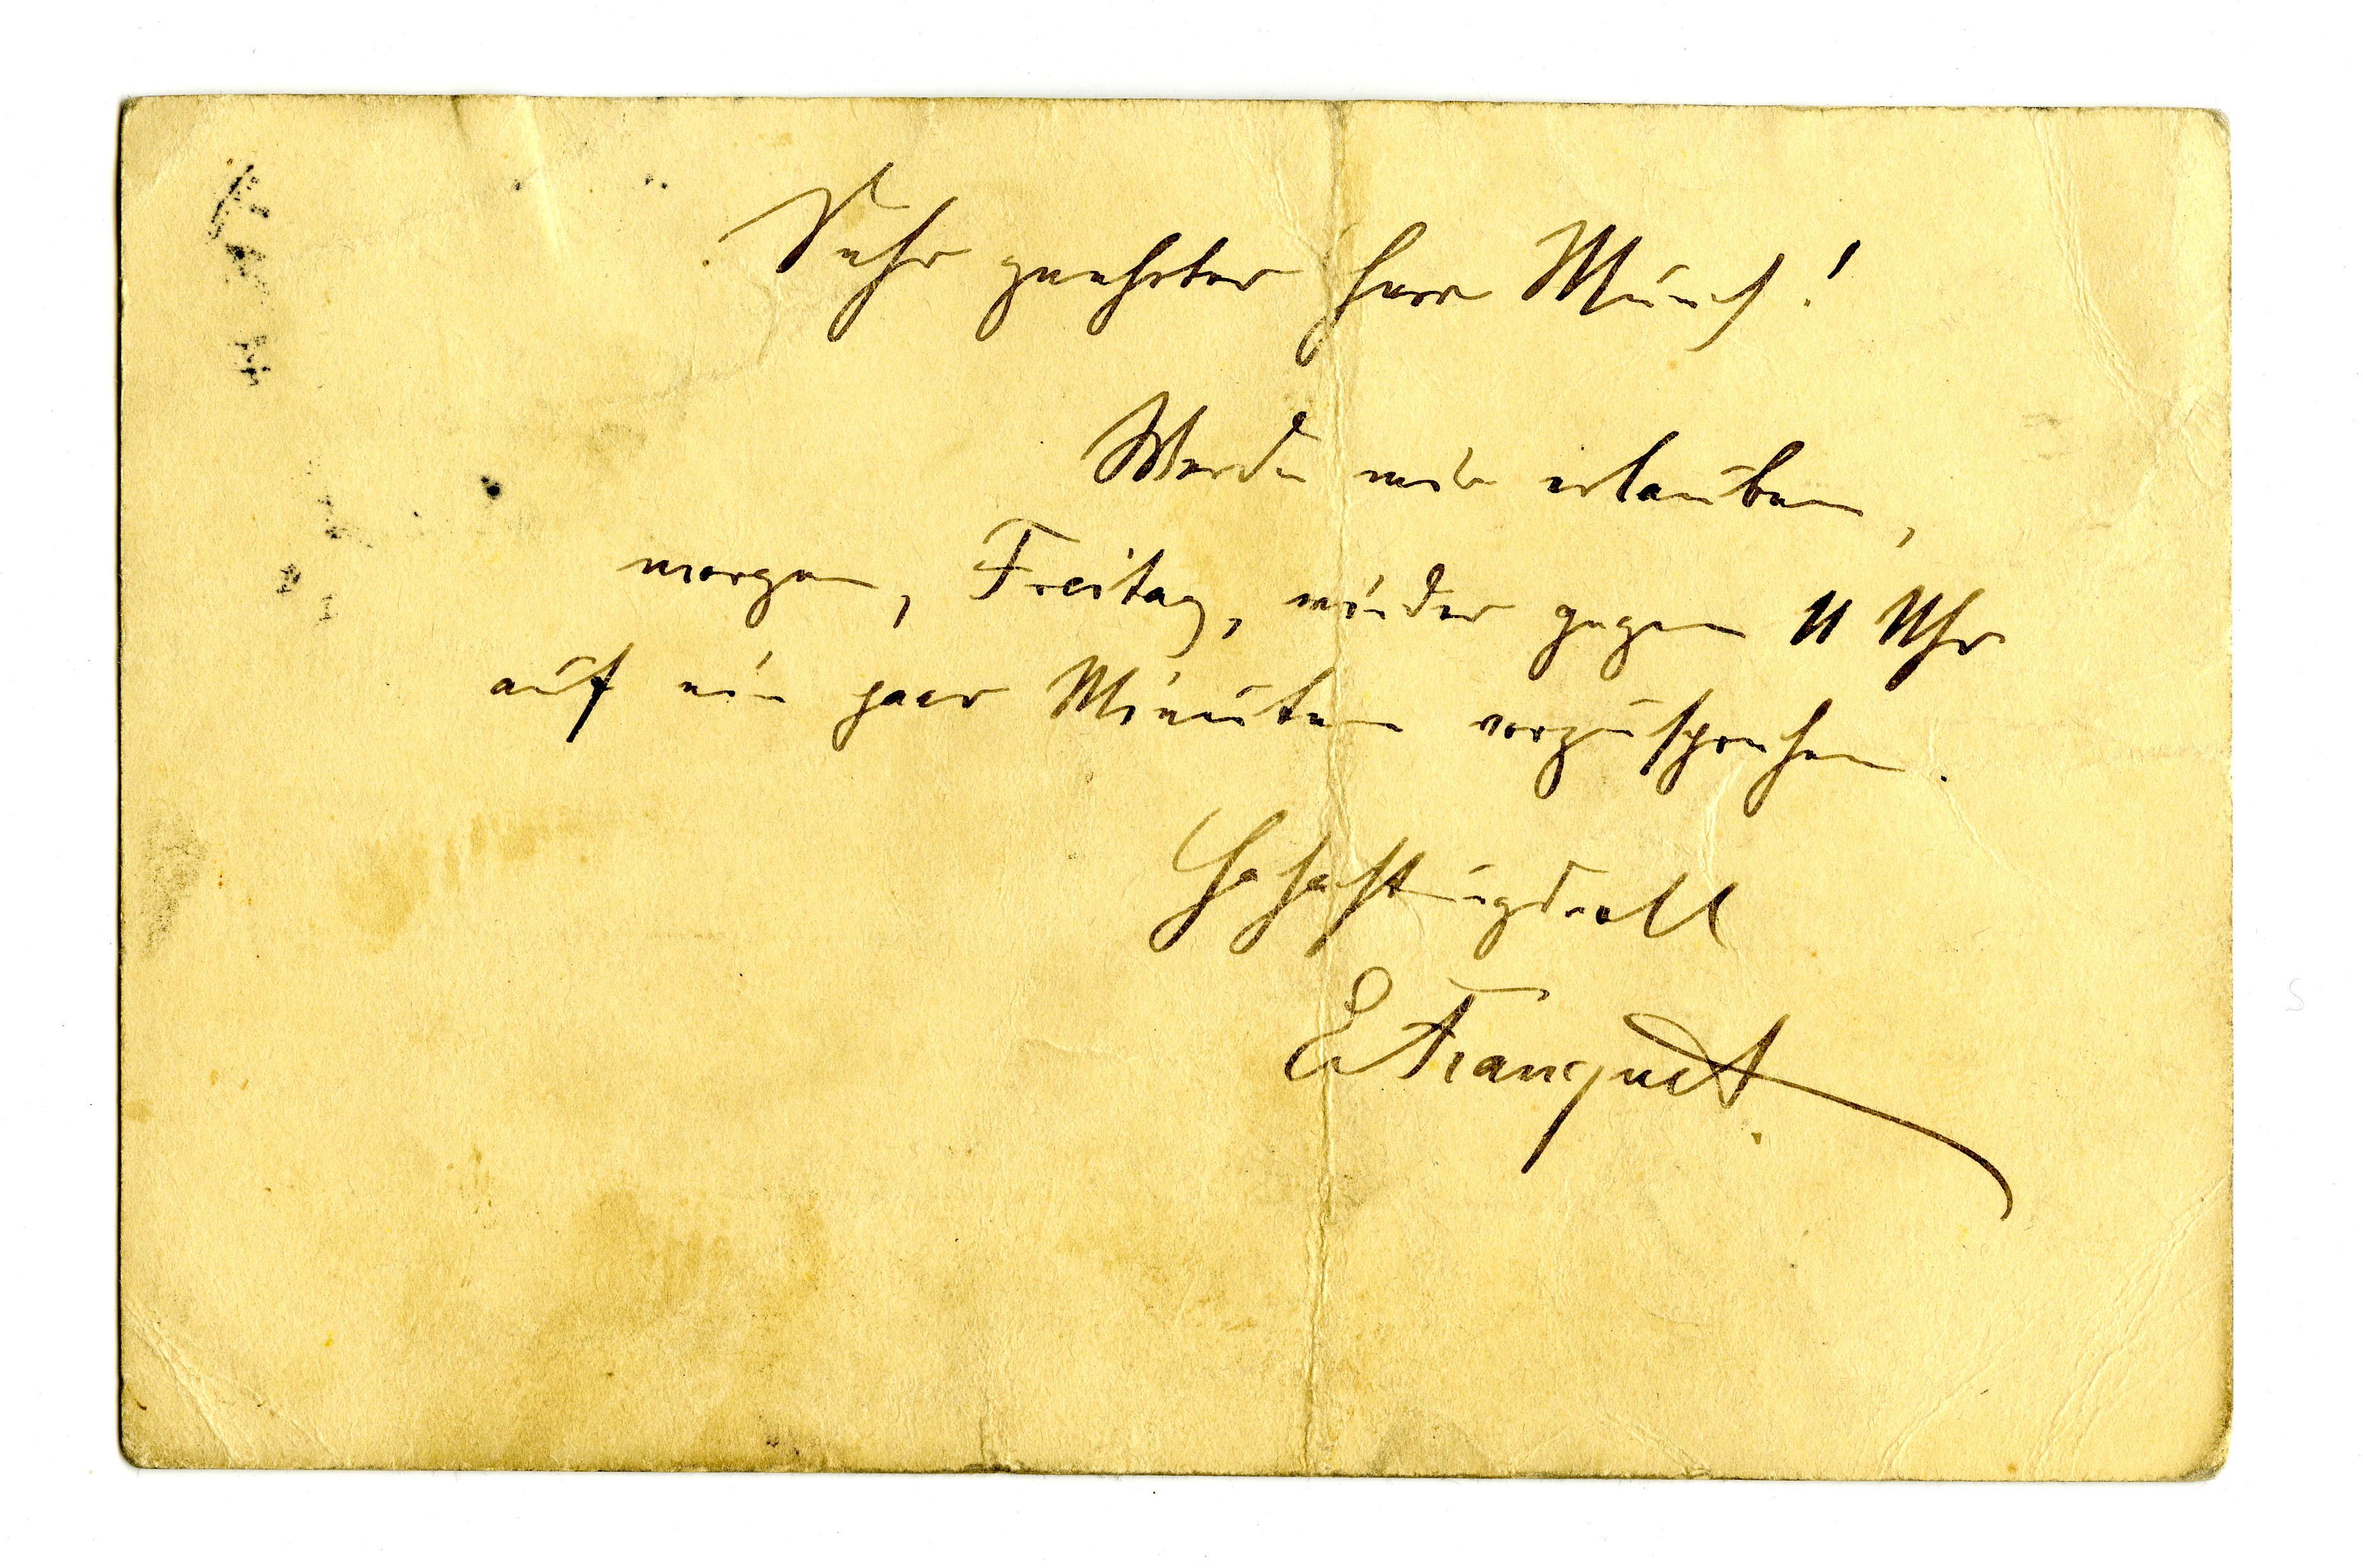 Sehr geehrter Herr Munch!
Werde mir erlauben,
morgen, Freitag, wieder gegen 11 Uhr
auf ein paar Minuten vorzusprechen.
Hochachtungsvoll
E Franquet.